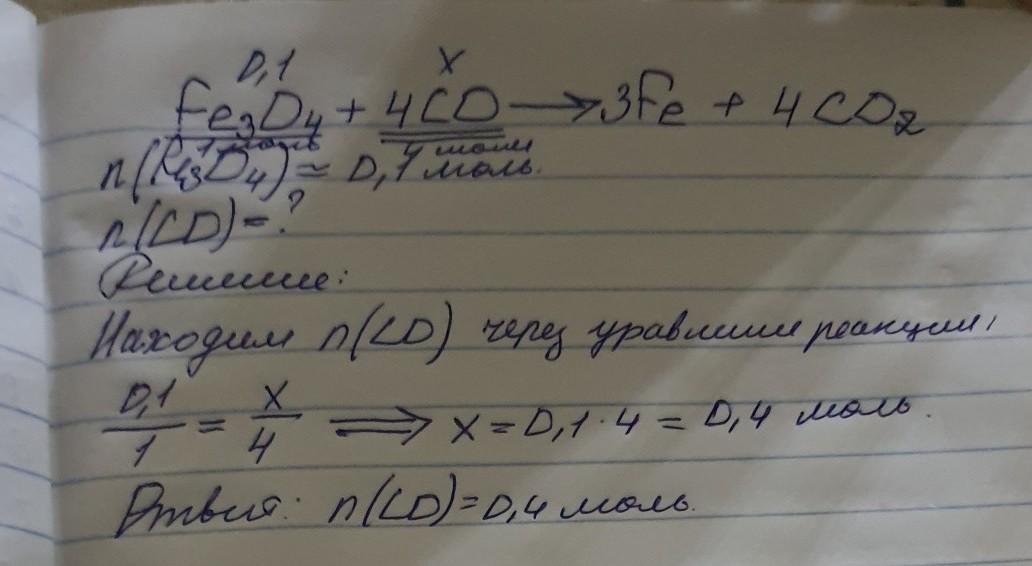 0,1 x
Fe₃O₄ + 4CO → 3Fe + 4CO₂
1 моль 4 моль
n(Fe₃O₄) = 0,1 моль.
n(CO) = ?
Решение:
Находим n(CO) через уравнение реакции,
0,1/1 = x/4 ⟹ x = 0,1 · 4 = 0,4 моль.
Ответ: n(CO) = 0,4 моль.